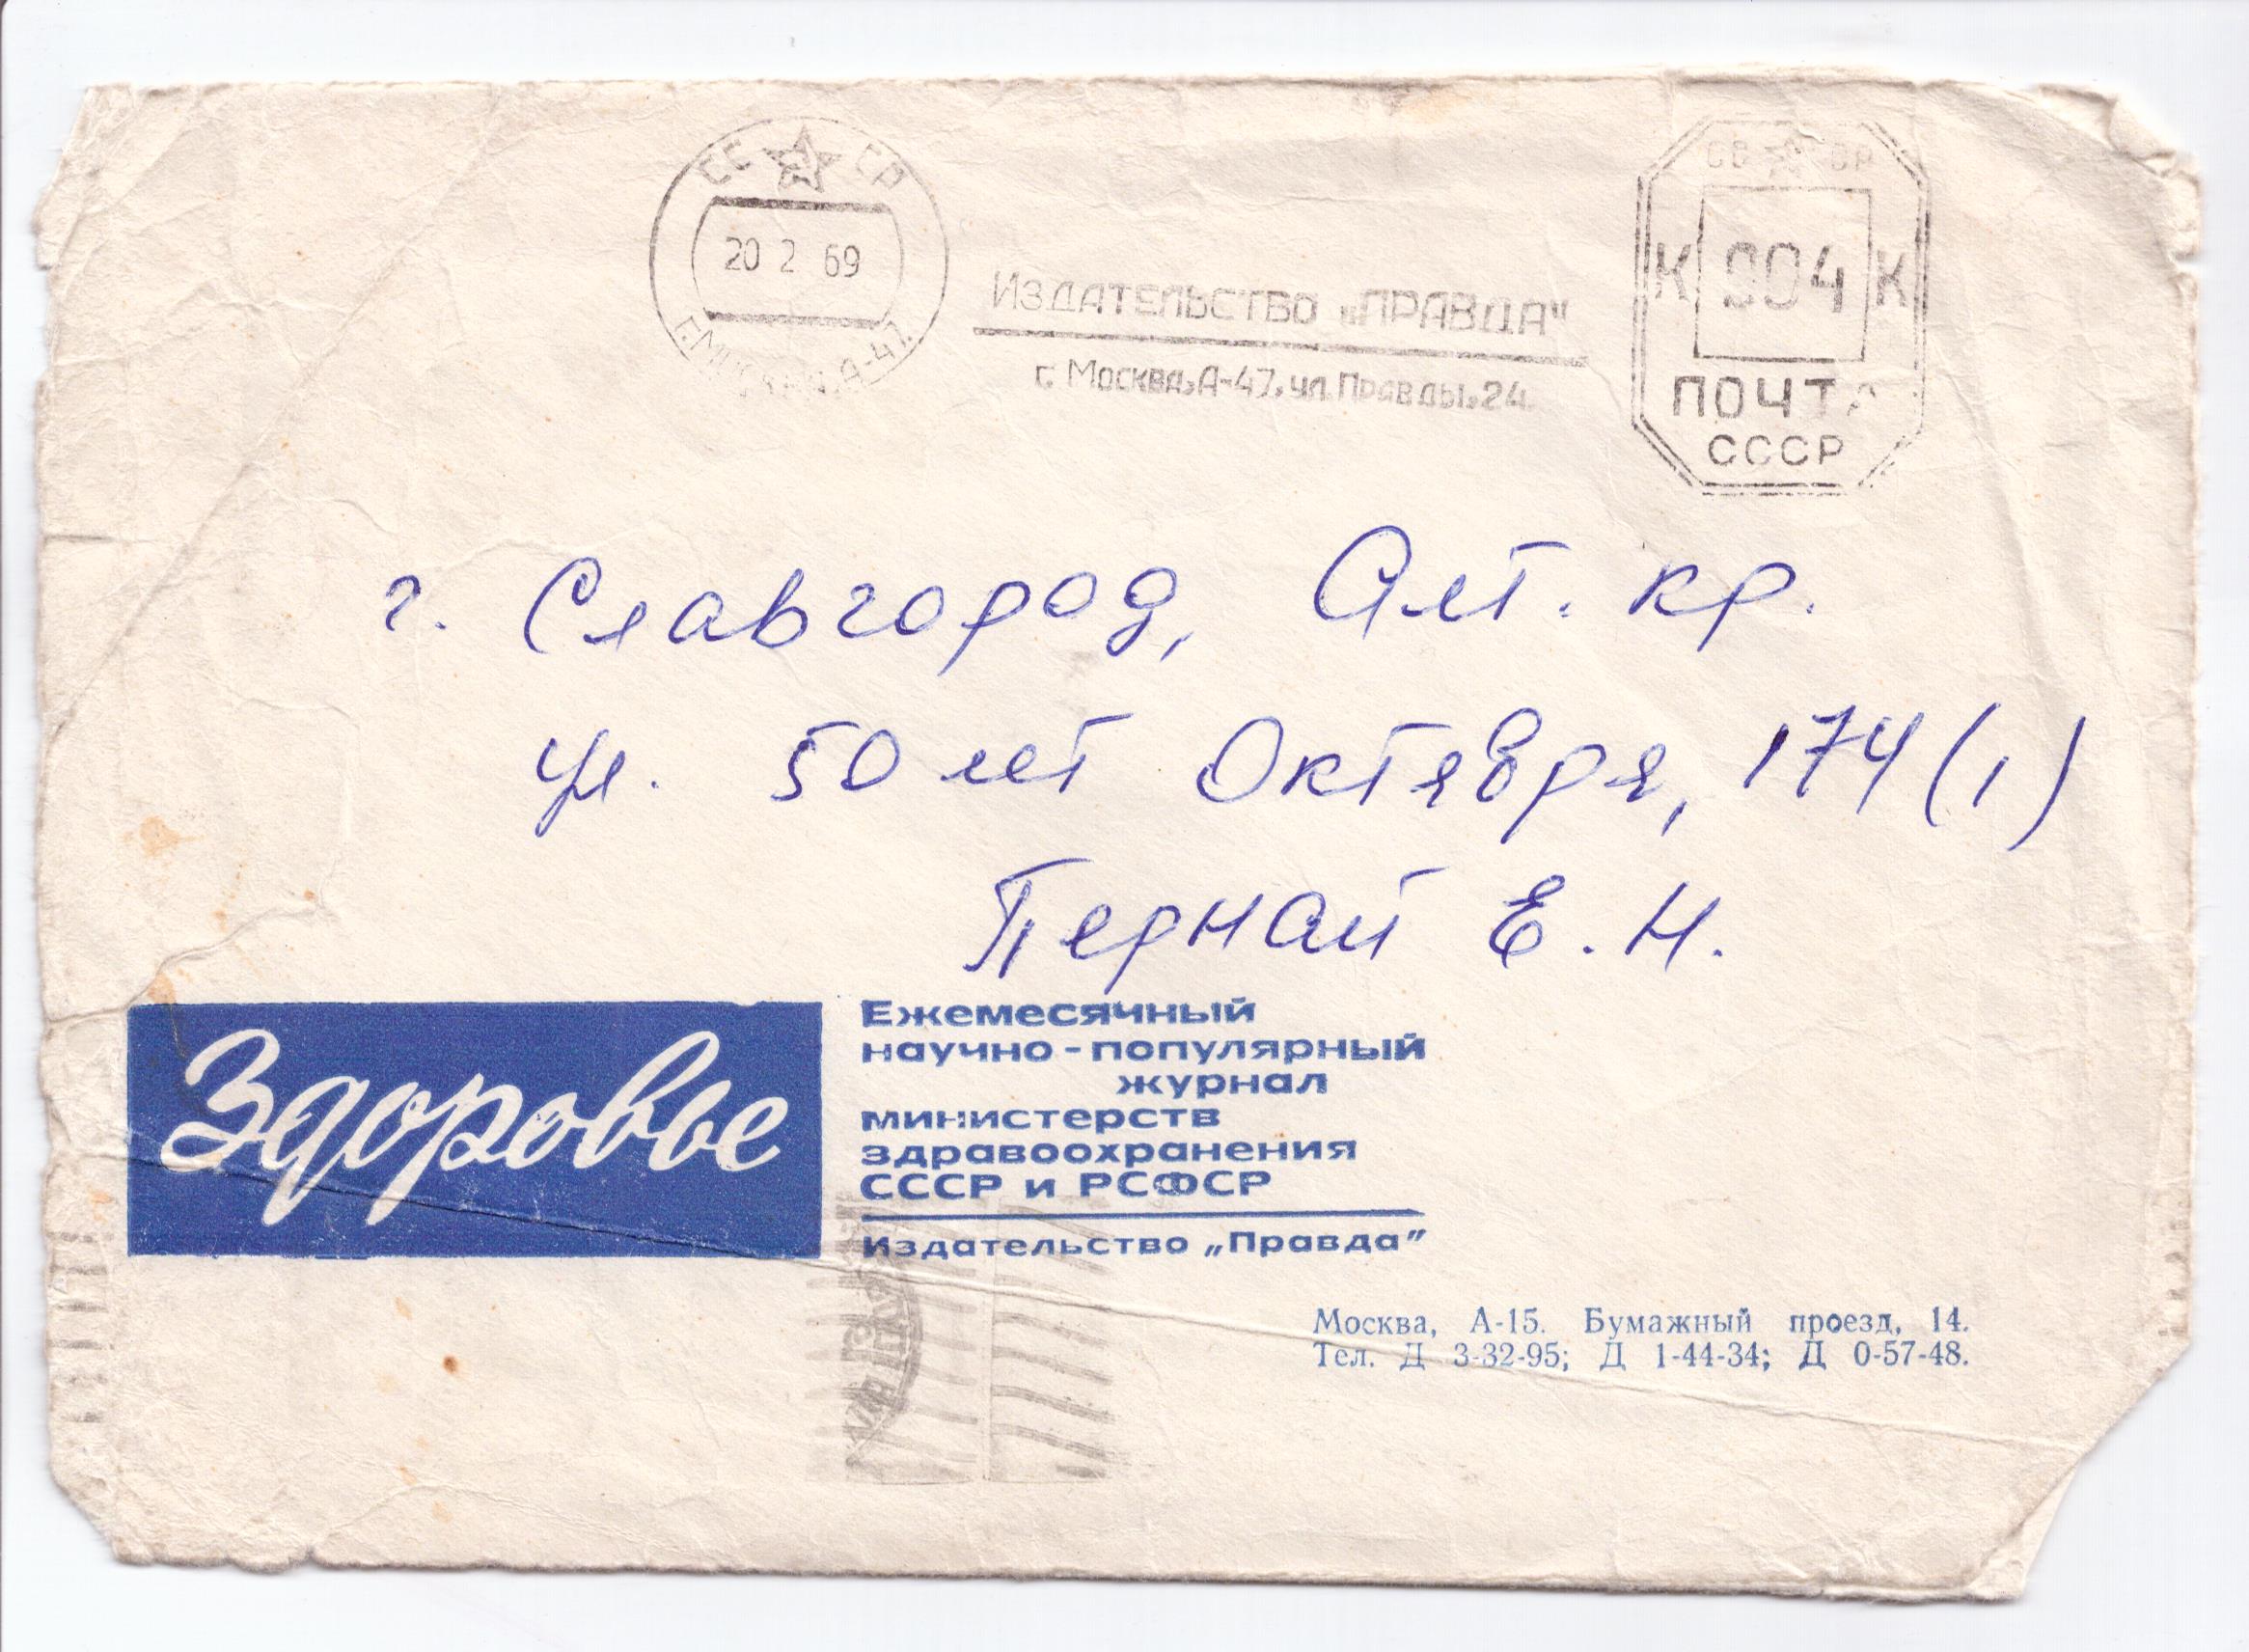 СС СР
20 2 69
г. Москва, А-47.
ИЗДАТЕЛЬСТВО „ПРАВДА"
г. Москва, А-47, ул. Правды, 24.
СС СР
К 004 К
ПОЧТА
СССР
г. Славгород, Алт. кр.
ул. 50 лет Октября, 174 (1)
Пернай Е. Н.
Здоровье
Ежемесячный
научно-популярный
журнал
министерств
здравоохранения
СССР и РСФСР
Издательство „Правда"
Москва, А-15. Бумажный проезд, 14.
Тел. Д 3-32-95; Д 1-44-34; Д 0-57-48.